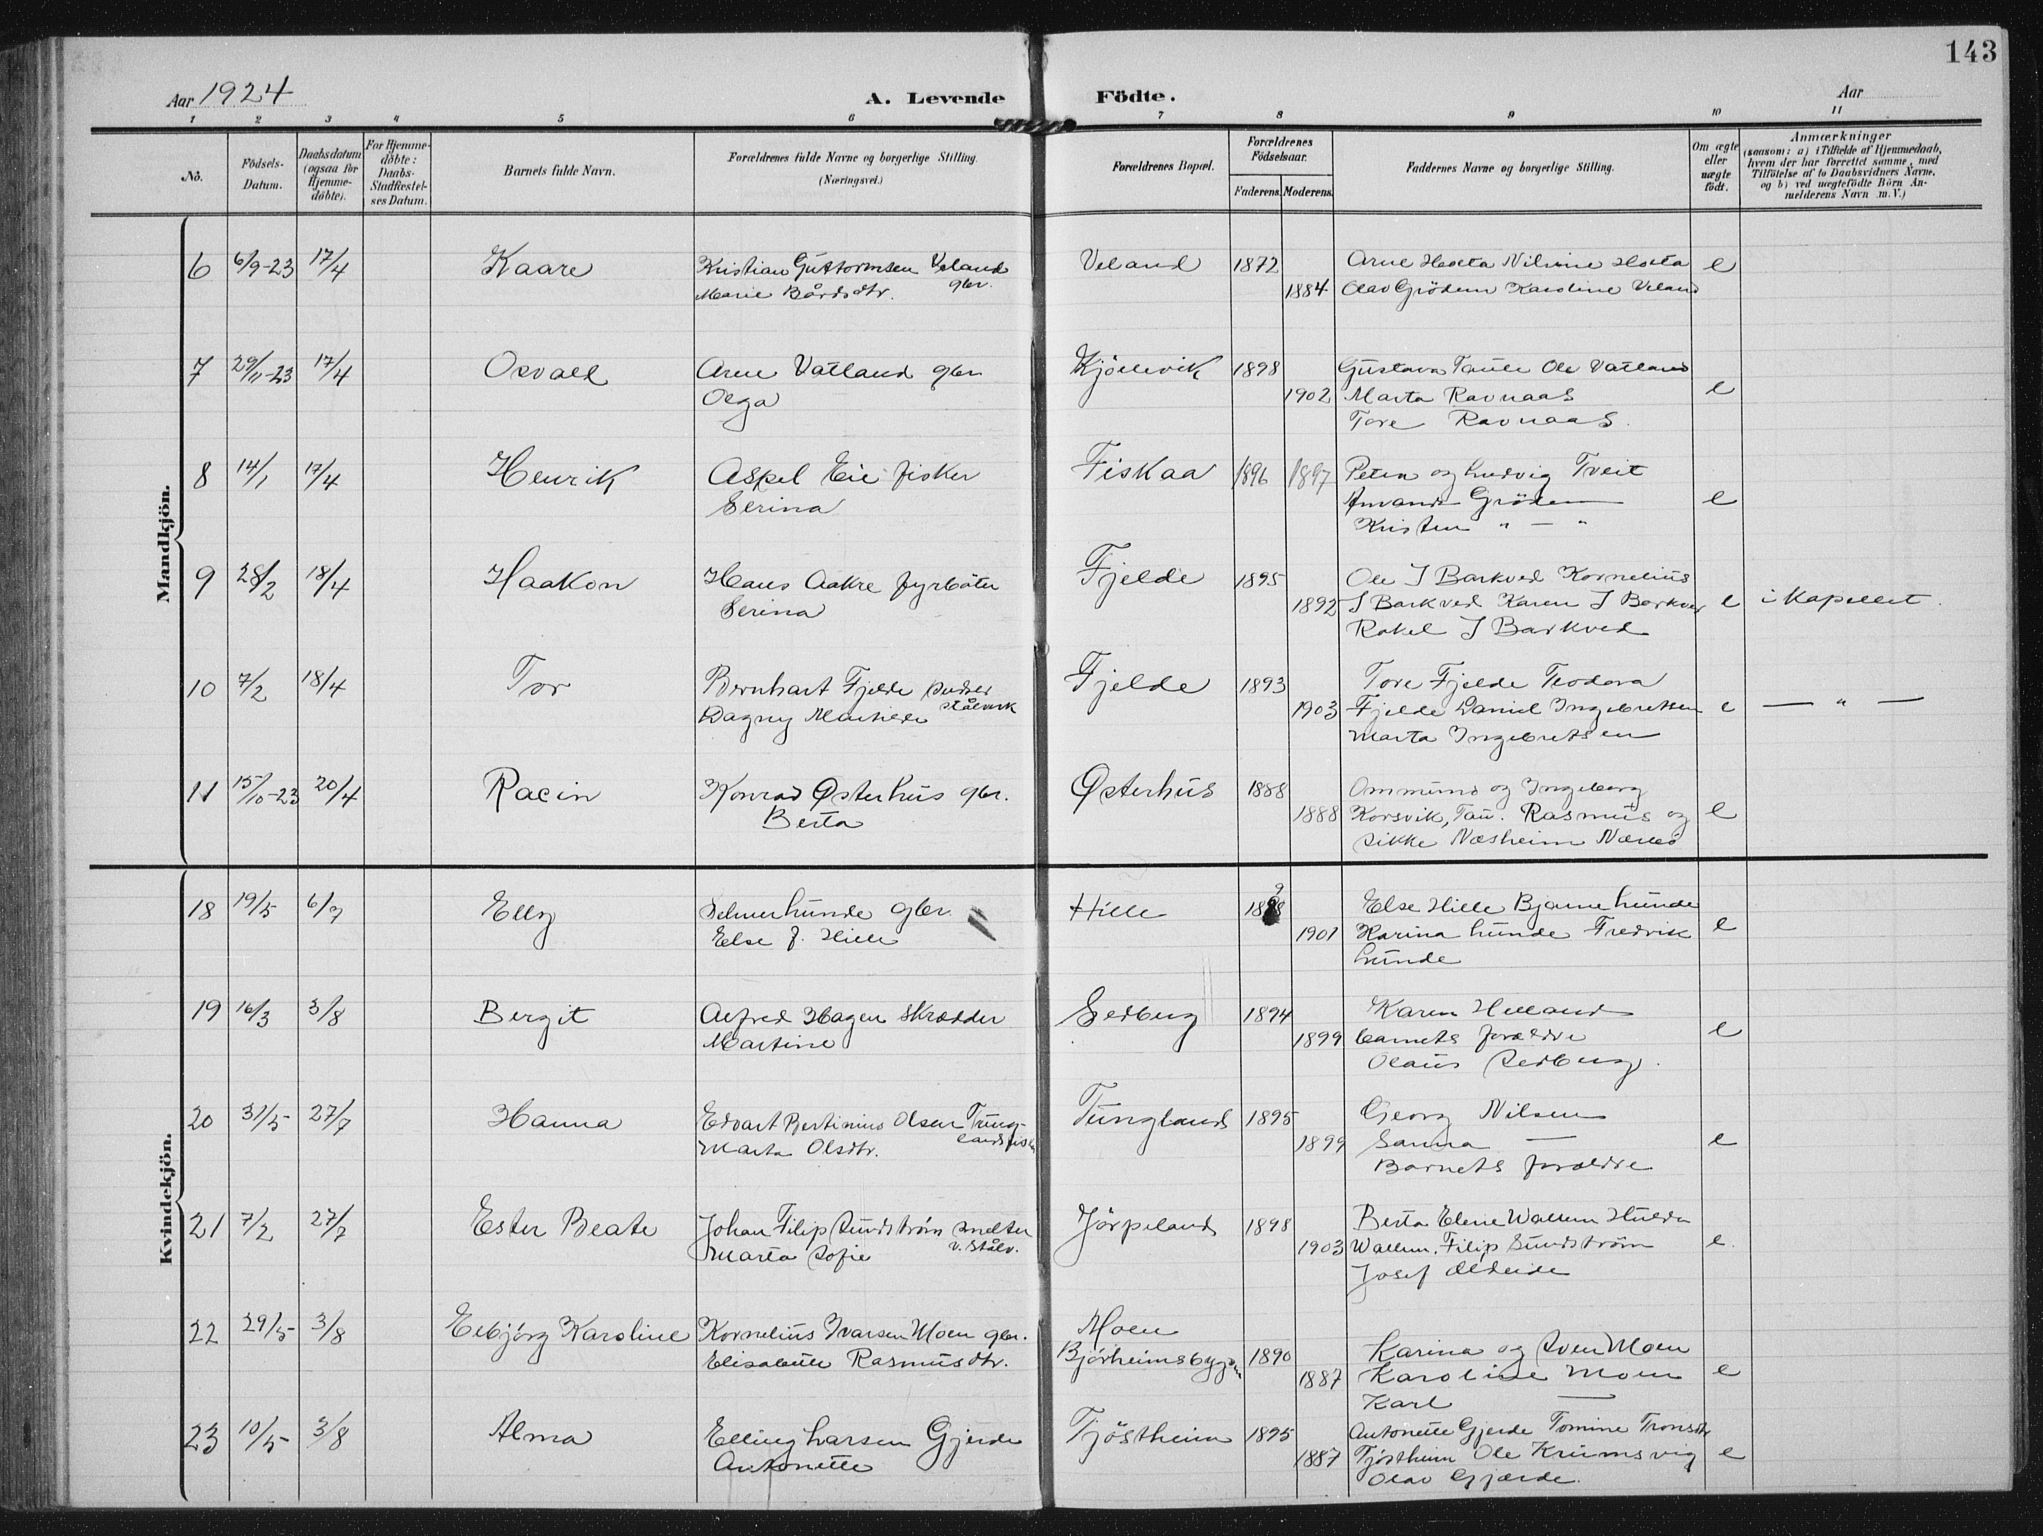 143
Aar 1924
A. Levende Födte.
Aar
1 2 3 4 5 6 7 8 9 10 11
No.
Födsels-Datum.
Daabsdatum (ogsaa for Hjemme-döbte).
For Hjemme-döbte: Daabs-Stadfæstel-ses Datum.
Barnets fulde Navn.
Forældrenes fulde Navne og borgerlige Stilling. (Næringsvei.)
Forældrenes Bopæl.
Forældrenes Födselsaar.
Faderens. Moderens.
Faddernes Navne og borgerlige Stilling.
Om ægte eller uægte födt.
Anmærkninger
(saasom: a) i Tilfælde af Hjemmedaab, hvem der har forrettet samme, med Tilföielse af to Daabsvidners Navne, og b) ved uægtefödte Börn An-melderens Navn m.V.)
Mandkjön.
6 6/9-23 17/4 Kaare Kristian Guttormsen Veland gbr. Veland 1872 Arne Hosta Nilsine Hosta e
Marie Bårdsdtr. 1884 Olav Grödem Karoline Veland
7 29/11-23 17/4 Osvald Arne Vatland gbr Kjölevik 1898 Gustava Ole Vatland
Olga 1902 Marta Ravnaas e
Tore Ravnaas.
8 14/1 17/4 Henrik Aspel Eie fisker Fiskaa 1896 1897 Petra og Ludvig Tveit
Serina Amanda Grödem e
Kristen " — "
9 28/2 18/4 Haakon Hans Aakre fyrböter Fjelde 1895 Ole J Barkved Kornelius
Serina 1892 J Barkved Karen J Barkved e i Kapellet.
Rakel J Barkved
10 7/2 18/4 Tor Bernhart Fjelde Fjelde 1893 Tore Fjelde Teodora
Dagny Mathilde stålverk 1903 Fjelde Daniel Ingebretsen e — " —
Marta Ingebretsen
11 15/10-23 20/4 Racin Konrad Østerhus gbr. Østerhus 1888 Ommund og Ingeborg
Berta 1888 Korsvik, Tau. Rasmus og e
Sikke Næsheim
Kvindekjön.
18 19/5 6/7 Elly Selmer Lunde gbr Hille Else Hille Bjarne Lunde
Else J. Hille 1901 Karina Lunde Fredrik e
Lunde
19 16/3 3/8 Bergit Alfred Hagen Skrædder Sedberg 1894 Karen Helland
Martine 1899 barnets forældre e
Olaus Sedberg.
20 31/5 27/7 Hanna Edvart Bertinius Olsen Tung- Tungland 1895 Georg Nilsen
Marta Olsdtr. 1899 Sanna — e
Barnets forældre
21 7/2 27/7 Ester Beate Johan Filip Sundström smelter v. Stålv. Jörpeland 1898 Berta Elene Wallem Hulda
Marta Sofie 1903 Wallem. Filip Sundström e.
Josef
22 29/5 3/8 Eebjörg Karoline Kornelius Ivarsen Moen gbr. Moen
Elisabeth Rasmusdtr. Björheimsbygd 1890 Karina og Sven Moen
1887 Karoline Moen e
Karl —
23 10/5 3/8 Alma Elling Larsen Gjerde Tjöstheim 1895 Antonette Gjerde Tomine Tronsdtr
Antonette 1887 Tjöstheim Ole Krumsvig e
Olav Gjærde.